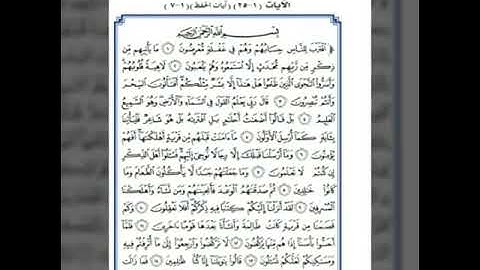 الآيات (١-٢٥) (آيات الحفظ) (١-٧)
بِسْمِ اللَّهِ الرَّحْمَٰنِ الرَّحِيمِ
﴿ اقْتَرَبَ لِلنَّاسِ حِسَابُهُمْ وَهُمْ فِي غَفْلَةٍ مُّعْرِضُونَ ۝١ مَا يَأْتِيهِم مِّن
ذِكْرٍ مِّن رَّبِّهِم مُّحْدَثٍ إِلَّا اسْتَمَعُوهُ وَهُمْ يَلْعَبُونَ ۝٢ لَاهِيَةً قُلُوبُهُمْ
وَأَسَرُّوا النَّجْوَى الَّذِينَ ظَلَمُوا هَلْ هَٰذَا إِلَّا بَشَرٌ مِّثْلُكُمْ أَفَتَأْتُونَ السِّحْرَ
وَأَنتُمْ تُبْصِرُونَ ۝٣ قَالَ رَبِّي يَعْلَمُ الْقَوْلَ فِي السَّمَاءِ وَالْأَرْضِ وَهُوَ السَّمِيعُ
الْعَلِيمُ ۝٤ بَلْ قَالُوا أَضْغَاثُ أَحْلَامٍ بَلِ افْتَرَاهُ بَلْ هُوَ شَاعِرٌ فَلْيَأْتِنَا
بِآيَةٍ كَمَا أُرْسِلَ الْأَوَّلُونَ ۝٥ مَا آمَنَتْ قَبْلَهُم مِّن قَرْيَةٍ أَهْلَكْنَاهَا أَفَهُمْ
يُؤْمِنُونَ ۝٦ وَمَا أَرْسَلْنَا قَبْلَكَ إِلَّا رِجَالًا نُّوحِي إِلَيْهِمْ فَاسْأَلُوا أَهْلَ الذِّكْرِ
إِن كُنتُمْ لَا تَعْلَمُونَ ۝٧ وَمَا جَعَلْنَاهُمْ جَسَدًا لَّا يَأْكُلُونَ الطَّعَامَ وَمَا
كَانُوا خَالِدِينَ ۝٨ ثُمَّ صَدَقْنَاهُمُ الْوَعْدَ فَأَنجَيْنَاهُمْ وَمَن نَّشَاءُ وَأَهْلَكْنَا
الْمُسْرِفِينَ ۝٩ لَقَدْ أَنزَلْنَا إِلَيْكُمْ كِتَابًا فِيهِ ذِكْرُكُمْ أَفَلَا تَعْقِلُونَ ۝١٠ وَكَمْ
قَصَمْنَا مِن قَرْيَةٍ كَانَتْ ظَالِمَةً وَأَنشَأْنَا بَعْدَهَا قَوْمًا آخَرِينَ ۝١١ فَلَمَّا
أَحَسُّوا بَأْسَنَا إِذَا هُم مِّنْهَا يَرْكُضُونَ ۝١٢ لَا تَرْكُضُوا وَارْجِعُوا إِلَىٰ مَا أُتْرِفْتُمْ فِيهِ
وَمَسَاكِنِكُمْ لَعَلَّكُمْ تُسْأَلُونَ ۝١٣ قَالُوا يَا وَيْلَنَا إِنَّا كُنَّا ظَالِمِينَ ۝١٤ فَمَا زَالَت